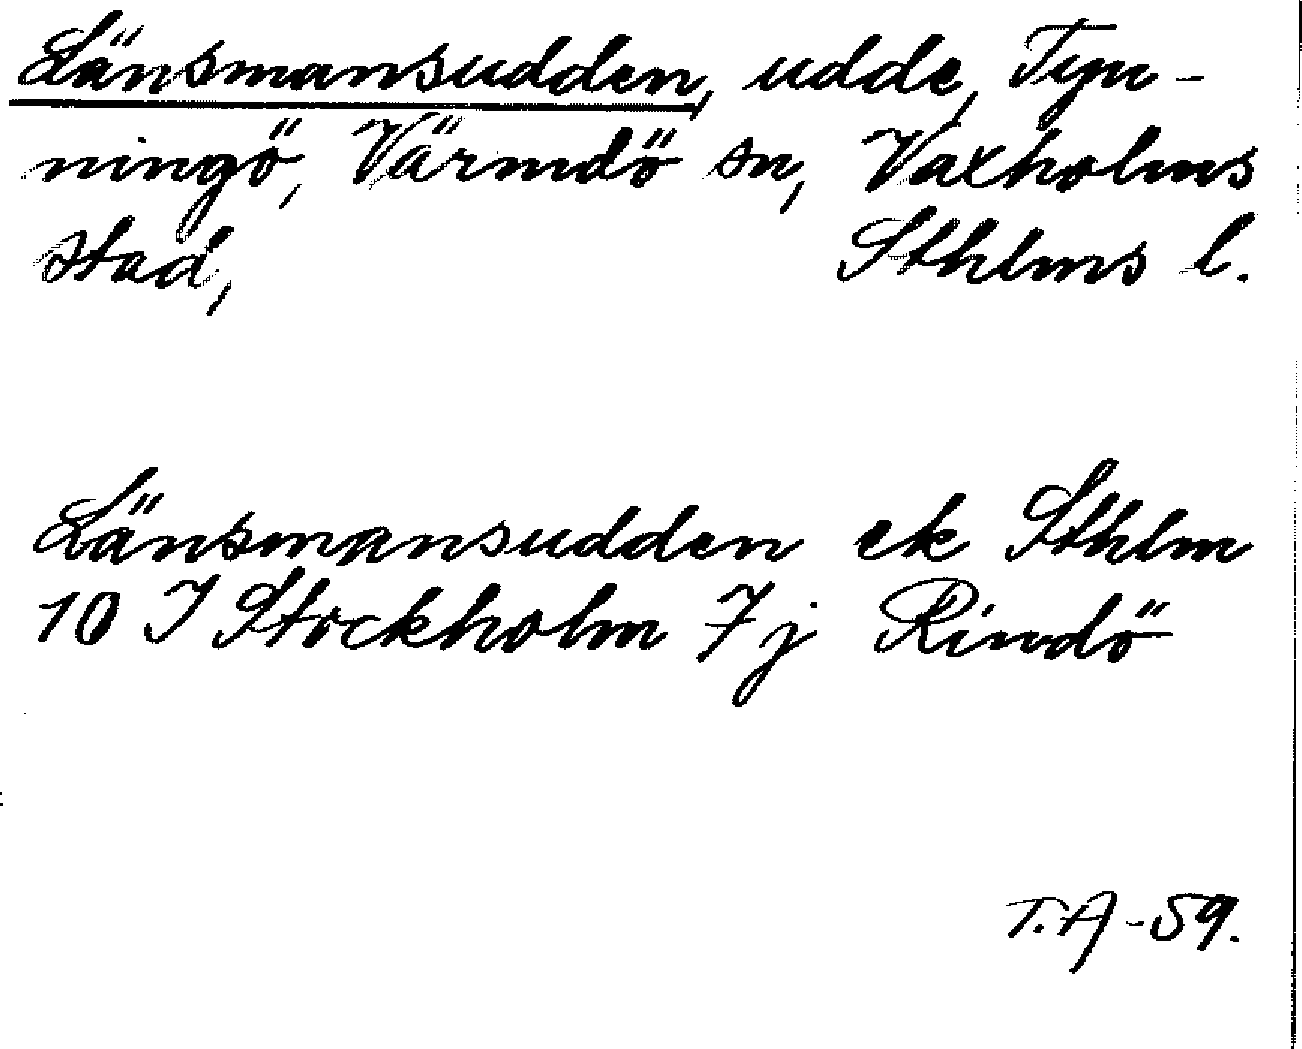 Länsmansudden, udde, Tyn-
ningö, Värmdö sn, Vaxholms
stad, Sthlms l.
Länsmansudden ek Sthlm
10 I Stockholm 7 j Rindö
T.A -59.